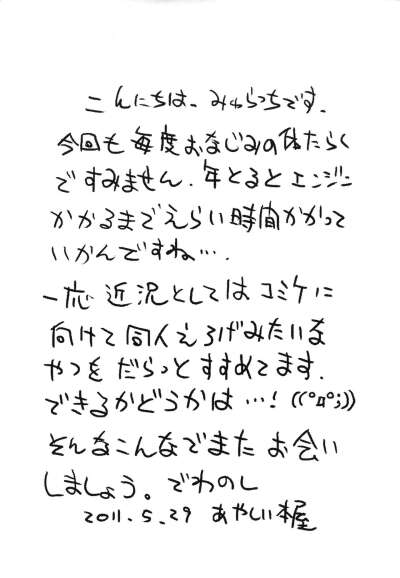 こんにちは、みゅらっちです.
今回も毎度おなじみの体たらく
ですみません. 年とるとエンジン
かかるまでえらい時間かかって
いかんですね….
一応 近況としてはコミケに
向けて同人えろげみたいな
やつを だらっとすすめてます.
できるかどうかは…! ((°д°;))
そんなこんなでまた お会い
しましょう。でわのし
2011.5.29 あやしい本屋